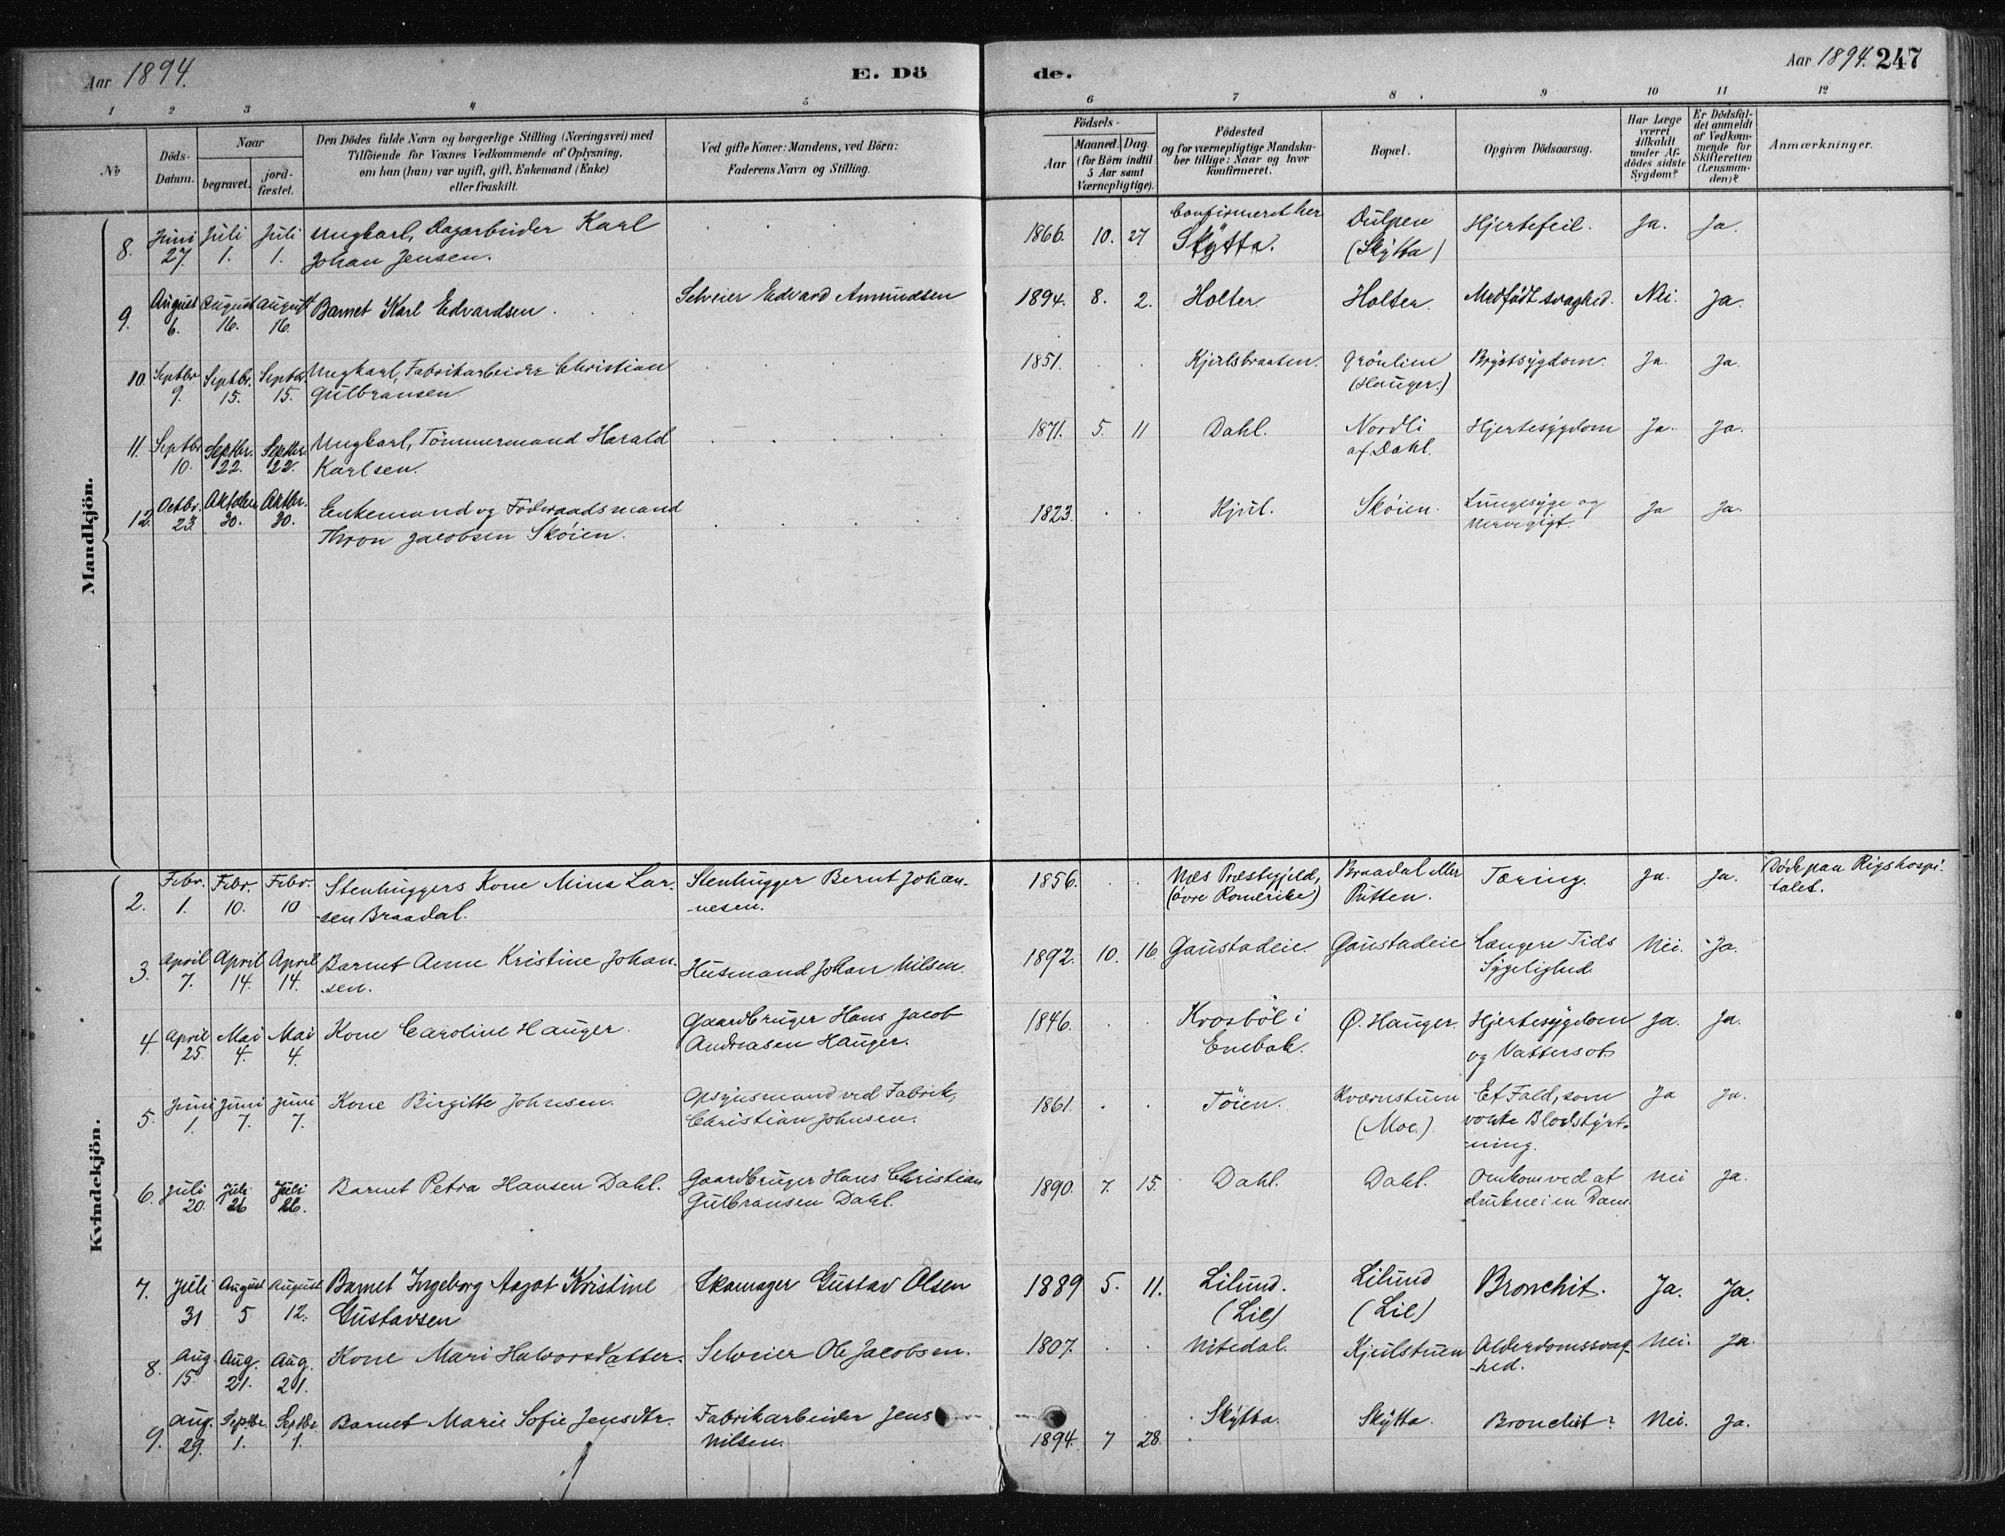 Aar 1894. E. Dö de. Aar 1894. 247
1 2 3 4 5 6 7 8 9 10 11 12
No
Döds-Datum.
Naar
begravet.
jord-fæstet.
Den Dödes fulde Navn og borgerlige Stilling (Næringsvei) med
Tilföiende for Voxnes Vedkommende af Oplysning,
om han (hun) var ugift, gift, Enkemand (Enke)
eller fraskilt.
Ved gifte Koner: Mandens, ved Börn:
Faderens Navn og Stilling.
Födsels-
Aar
Maaned. Dag.
(for Börn indtil
5 Aar samt
Værnepligtige).
Födested
og for værnepligtige Mandska-
ber tillige: Naar og hvor
konfirmeret.
Bopæl.
Opgiven Dödsaarsag.
Har Læge
været
tilkaldt
under Af-
dödes sidste
Sygdom?
Er Dödsfal-
det anmeldt
af Vedkom-
mende for
Skifteretten
(Lensman-
den)?
Anmærkninger.
Mandkjön.
8. Juni 27. Juli 1. Juli 1. Ungkarl, Dagarbeider Karl
Johan Jensen.
1866. 10. 27 Confirmeret her
Skÿtta. Dulpen
(Skÿtta) Hjertefeil. Ja. Ja.
9. August 6. August 16. August 16. Barnet Karl Edvardsen. Selveier Edvard Amundsen 1894. 8. 2. Holter. Holter. Medfödt svaghed. Nei. Ja.
10. Septbr. 9. Septbr. 15. Septbr. 15. Ungkarl, Fabrikarbeider Christian
Gulbransen.
1851. Kjerlsbraaten. Grönlien
(Hauger.) Brÿstsÿgdom. Ja. Ja.
11. Septbr. 10. Septbr. 22. Septbr. 22. Ungkarl, Tömmermand Harald
Karlsen.
1871. 5. 11 Dahl. Nordli
af Dahl. Hjertesÿgdom Ja. Ja.
12. Octbr. 23. Oktober 30. Oktbr. 30. Enkemand og Föderaadsmand
Thron Jacobsen Skøien.
1823. Kjul. Skøien. Lungesÿge og
Nervegigt. Ja Ja.
Kvindekjön.
2. Febr. 1. Febr. 10. Febr. 10 Stenhuggers Kone Mina Lar-
sen Braadal. Stenhugger Bernt Johan-
nesen.
1856. Næs Præstegjeld,
(övre Romerike) Braadal eller
Putten. Tæring. Ja. Ja. Døde paa Rigshospi-
talet.
3. April 7. April 14. April 14. Barnet Anne Kristine Johan-
sen. Husmand Johan Nilsen.
1892. 10. 16 Gaustadeie. Gaustadeie Længere Tids
Sygelighed. Nei. Ja.
4. April 25. Mai 4. Mai 4. Kone Caroline Hauger. Gaardbruger Hans Jacob
Andreasen Hauger.
1846. Krosböl i
Enebak. Ø. Hauger. Hjertesÿgdom
og Vattersot Ja. Ja.
5. Juni 1. Juni 7. Juni 7. Kone Birgitte Johnsen. Opsynsmand ved Fabrik,
Christian Johnsen.
1861. Töien. Kværnstuen
(Moe.) Et Fald, som
vokte Blodstÿrt-
ning. Ja Ja.
6. Juli 20. Juli 26 Juli 26. Barnet Petra Hansen Dahl. Gaardbruger Hans Christian
Gulbransen Dahl.
1890. 7. 15. Dahl. Dahl. Omkom ved at
drukne i en Dam. Nei Ja.
7. Juli 31 August 5 August 12. Barnet Ingeborg Aagot Kristine
Gustavsen Skomager Gustav Olsen
1889 5. 11. Lilund.
(Lie) Lilund
(Lie) Bronchit. Ja. Ja.
8. Aug. 15. Aug. 21. Aug. 21. Kone Mari Halvorsdatter. Selveier Ole Jacobsen. 1807. Nitedal. Kjulstuen Alderdomssvag-
hed. Nei. Ja.
9. Aug. 29. Septbr. 1. Septbr. 1. Barnet Marie Sofie Jensdtr. Fabrikarbeider Jens
Nilsen.
1894. 7 28. Skÿtta. Skÿtta. Bronchit? Nei. Ja.